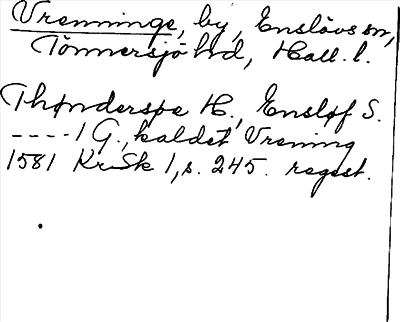 Vrenninge, by, Enslövs sn,
Tönnersjö hd, Hall. l.
Thønderspe H., Ensløf S.
----1 G., kaldet Vrening
1581 KrSk 1, s. 245. regest.